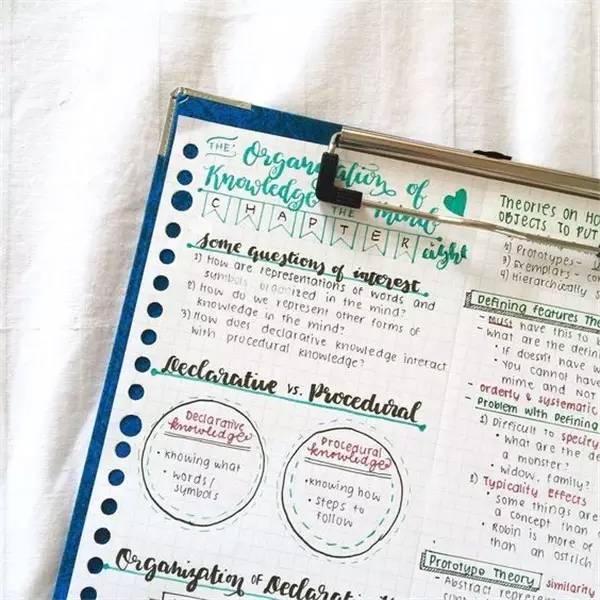 THE Organization of
Knowledge IN THE Mind
CHAPTER eight
Some questions of interest
1) How are representations of words and
symbols organized in the mind?
2) How do we represent other forms of
knowledge in the mind?
3) How does declarative knowledge interact
with procedural knowledge?
Declarative vs. Procedural
Declarative
knowledge
• knowing what
• words/
symbols
Procedural
knowledge
• knowing how
• steps to
follow
Organization OF
Theories on
OBJECTS TO PUT
2) Prototypes -
3) Exemplars -
4) Hierarchically
Defining features
- Must have this to
- what are the
• If doesn't have
• You cannot have
mime and not
- orderly & systematic
- Problem with Defining
1) Difficult to specify
• what are the
a monster?
• widow, family?
2) Typicality Effects
• some things are
a concept than
• Robin is more
than an ostrich
Prototype Theory similarity
- Abstract